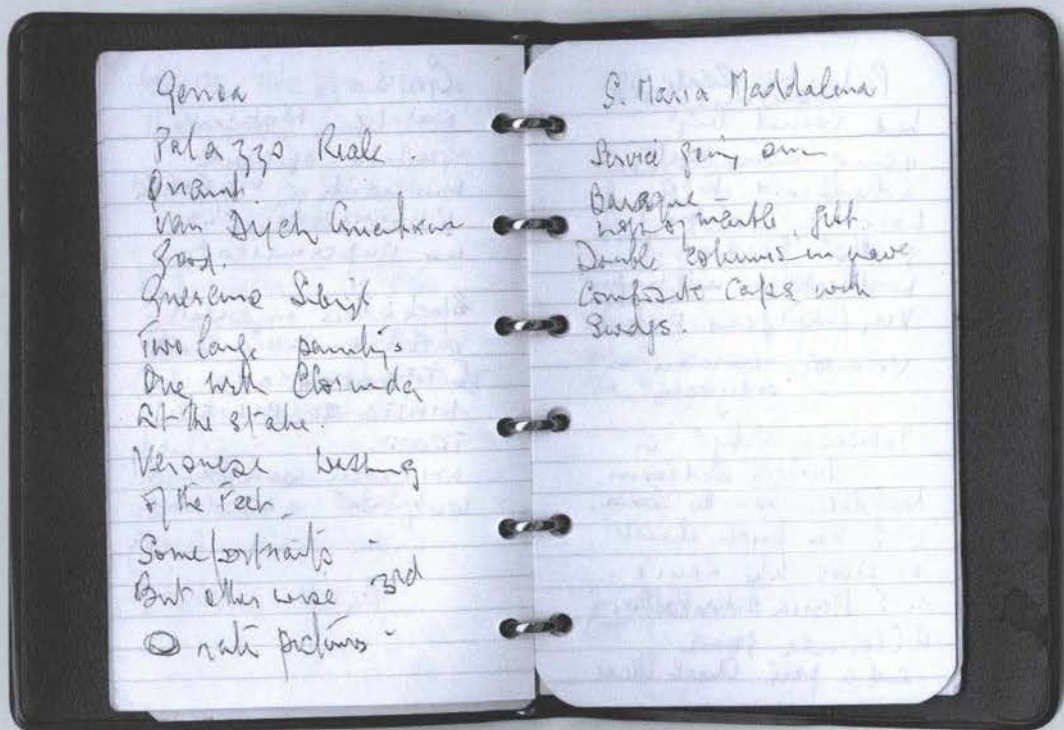 Genoa
Palazzo Reale.
van Dijck
Good.
Guercino
Two large paintings
One with Clorinda
at the stake.
Veronese Washing
of the Feet.
Some portraits -
But otherwise 3rd
rate pictures -
S. Maria Maddalena
Service going on
Baroque -
of marble, gilt.
Double columns in nave
Composite caps with
Swags.